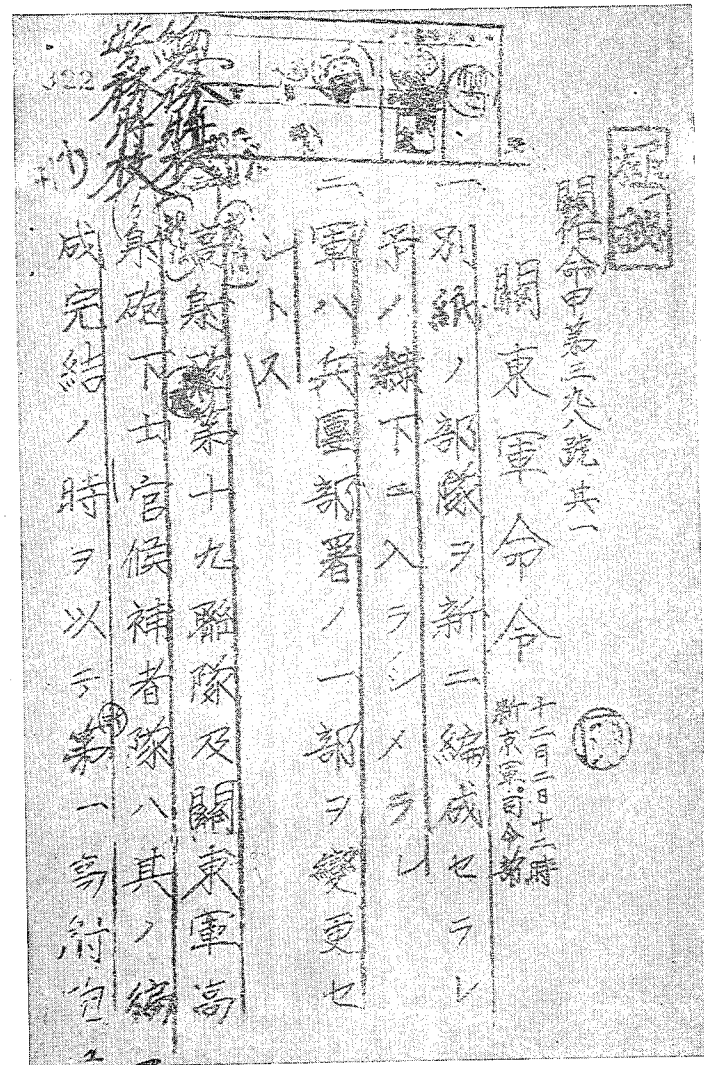 極秘
關作命甲第三九八號 其一
關東軍命令
十二月二日十二時
新京軍司令部
一
別紙ノ部隊ヲ新ニ編成セラレ
予ノ隷下ニ入ラシメラレ
二
軍ハ兵團部署ノ一部ヲ變更セ
ントス
高射砲第十九聯隊及關東軍高
射砲下士官候補者隊ハ其ノ編
成完結ノ時ヲ以テ第一高射砲
322